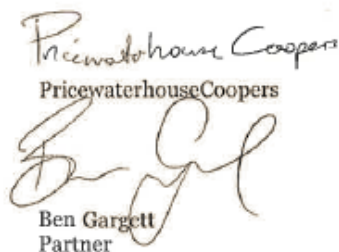 Pricewaterhouse Coopers
PricewaterhouseCoopers
Ben Gargett
Partner